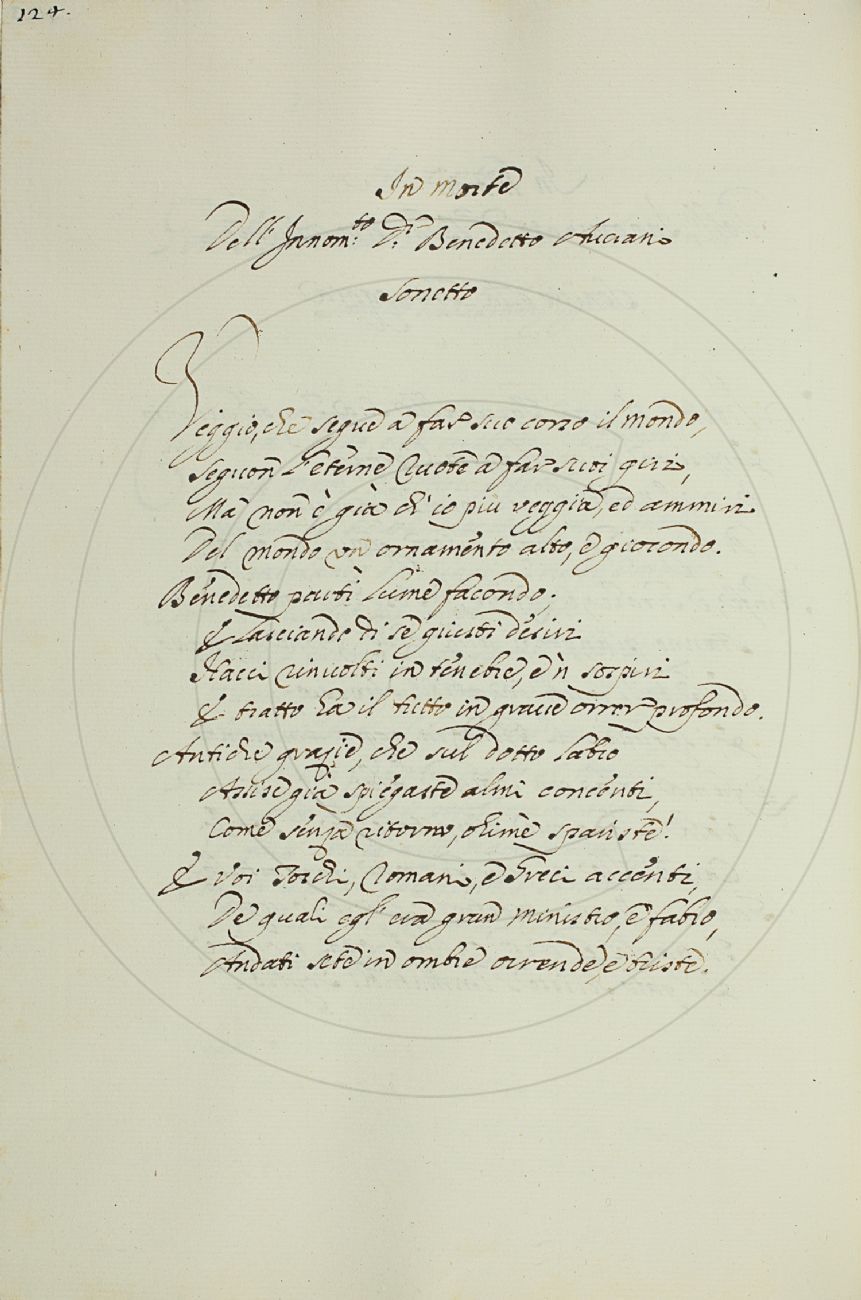 124.
In morte
Dell' Innom:to D:r Benedetto
Sonetto
Veggio, che segue a far suo corso il mondo,
Seguon l'eterne ruote a far suoi giri,
Ma non è già ch'io piu veggia, ed ammiri
Del mondo un ornamento alto, e giocondo.
Benedetto partì lume facondo;
E lasciando di se giusti desiri
Hacci rinvolti in tenebre, e 'n sospiri
E tratto ha il tutto in grave orror profondo.
Antiche grazie, che sul dotto labro
Assise già spiegaste almi concenti,
Come senza ritorno, ohimè spariste!
E voi Toschi, Romani, e Greci accenti,
De quali egl' era gran ministro, e fabro,
Andati sete in ombre orrende, e triste.